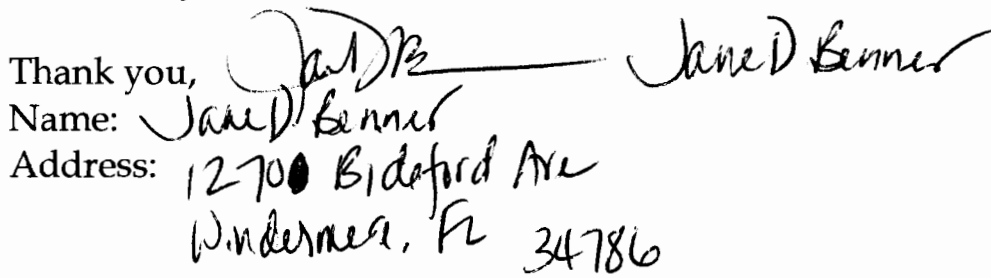 Thank you, Jane D Benner
Name: Jane D Benner
Address: 12700 Bideford Ave
Windermere, FL 34786